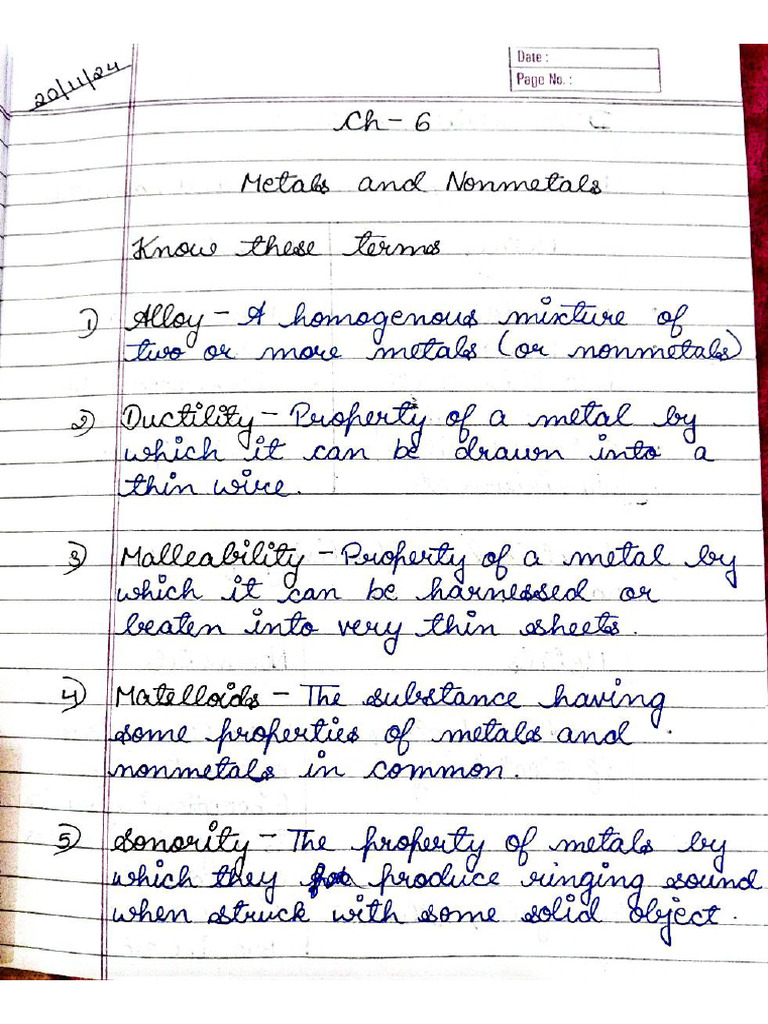 20/11/24
Date :
Page No. :
Ch - 6
Metals and Nonmetals
Know these terms
1) Alloy - A homogenous mixture of
two or more metals (or nonmetals)
2) Ductility - Property of a metal by
which it can be drawn into a
thin wire.
3) Malleability - Property of a metal by
which it can be harnessed or
beaten into very thin sheets.
4) Matelloids - The substance having
some properties of metals and
nonmetals in common.
5) Sonority - The property of metals by
which they produce ringing sound
when struck with some solid object.